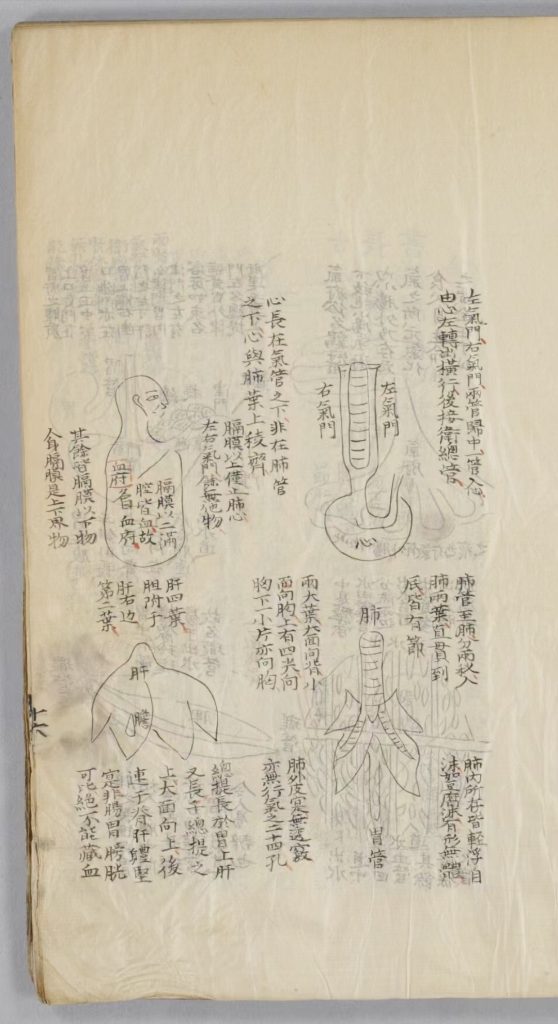 左氣門右氣門兩管歸中一管入心
由心左轉出橫行後接衛總管
左氣門
右氣門
心
心長在氣管之下非在肺管
之下心與肺葉上稜齊
膈膜以上僅止肺心
左右氣門餘無他物
膈膜以上滿
腔皆血故
名血府
血府
其餘皆膈膜以下物
人身膈膜是上下界物
肺管至肺分兩杈入
肺兩葉直貫到
底皆有節
肺
胃管
肺內所存皆輕浮白
沫如豆腐沫有形無體
兩大葉大面向背小
面向胸上有四尖向
胸下一小片亦向胸
肺外皮實無透竅
亦無行氣之二十四孔
肝四葉
胆附于
肝右边
第二葉
肝
膽
總提長於胃上肝
又長于總提之
上大面向上後
連于脊肝體堅
寔非腸胃膀胱
可比絕不能藏血
十六